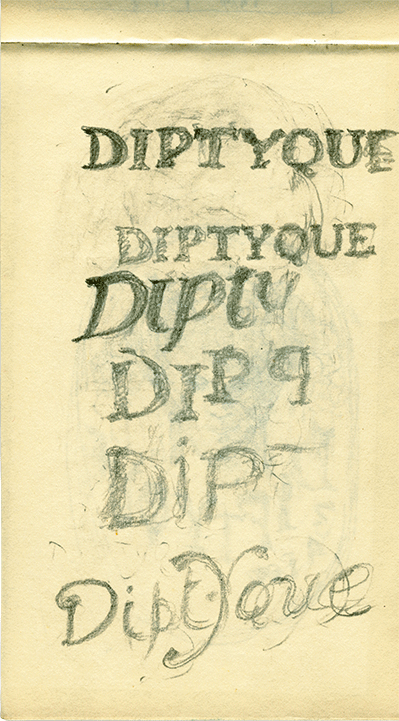 DIPTYQUE
DIPTYQUE
Dipty
DIP'q
Dip
Diptyque